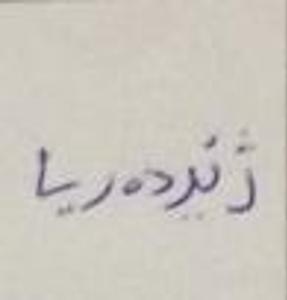 ژێردەریا